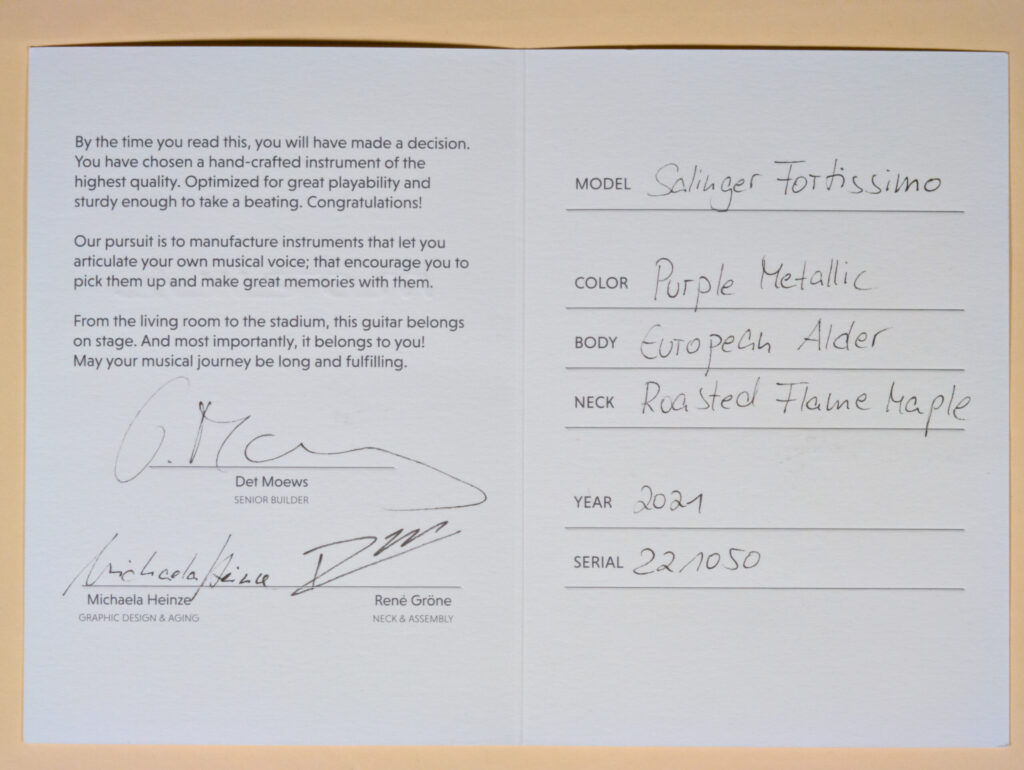 By the time you read this, you will have made a decision.
You have chosen a hand-crafted instrument of the
highest quality. Optimized for great playability and
sturdy enough to take a beating. Congratulations!
Our pursuit is to manufacture instruments that let you
articulate your own musical voice; that encourage you to
pick them up and make great memories with them.
From the living room to the stadium, this guitar belongs
on stage. And most importantly, it belongs to you!
May your musical journey be long and fulfilling.
Det Moews
SENIOR BUILDER
Michaela Heinze
Michaela Heinze
GRAPHIC DESIGN & AGING
René Gröne
NECK & ASSEMBLY
MODEL Salinger Fortissimo
COLOR Purple Metallic
BODY European Alder
NECK Roasted Flame Maple
YEAR 2021
SERIAL 221050